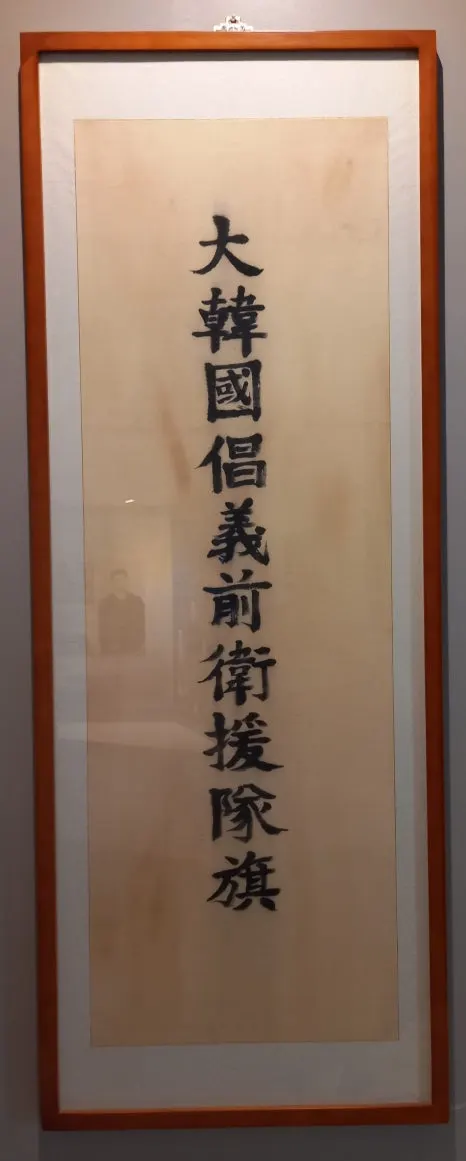 大韓國倡義前衛援隊旗